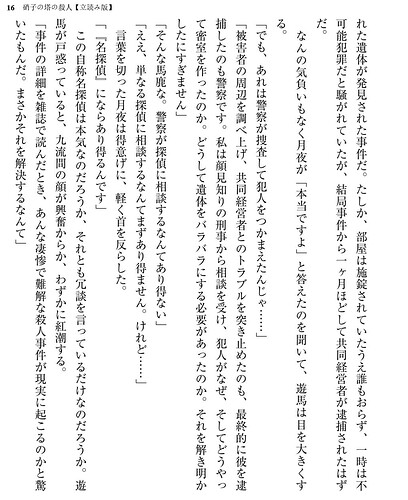 16 硝子の塔の殺人【立読み版】
れた遺体が発見された事件だ。たしか、部屋は施錠されていたうえ誰もおらず、一時は不
可能犯罪だと騒がれていたが、結局事件から一ヶ月ほどして共同経営者が逮捕されたはず
だ。
なんの気負いもなく月夜が「本当ですよ」と答えたのを聞いて、遊馬は目を大きくす
る。
「でも、あれは警察が捜査して犯人をつかまえたんじゃ……」
「被害者の周辺を調べ上げ、共同経営者とのトラブルを突き止めたのも、最終的に彼を逮
捕したのも警察です。私は顔見知りの刑事から相談を受け、犯人がなぜ、そしてどうやっ
て密室を作ったのか。どうして遺体をバラバラにする必要があったのか。それを解き明か
したにすぎません」
「そんな馬鹿な。警察が探偵に相談するなんてあり得ない」
「ええ、単なる探偵に相談するなんてまずあり得ません。けれど……」
言葉を切った月夜は得意げに、軽く首を反らした。
「『名探偵』にならあり得るんです」
この自称名探偵は本気なのだろうか、それとも冗談を言っているだけなのだろうか。遊
馬が戸惑っていると、九流間の顔が興奮からか、わずかに紅潮する。
「事件の詳細を雑誌で読んだとき、あんな凄惨で難解な殺人事件が現実に起こるのかと驚
いたもんだ。まさかそれを解決するなんて」